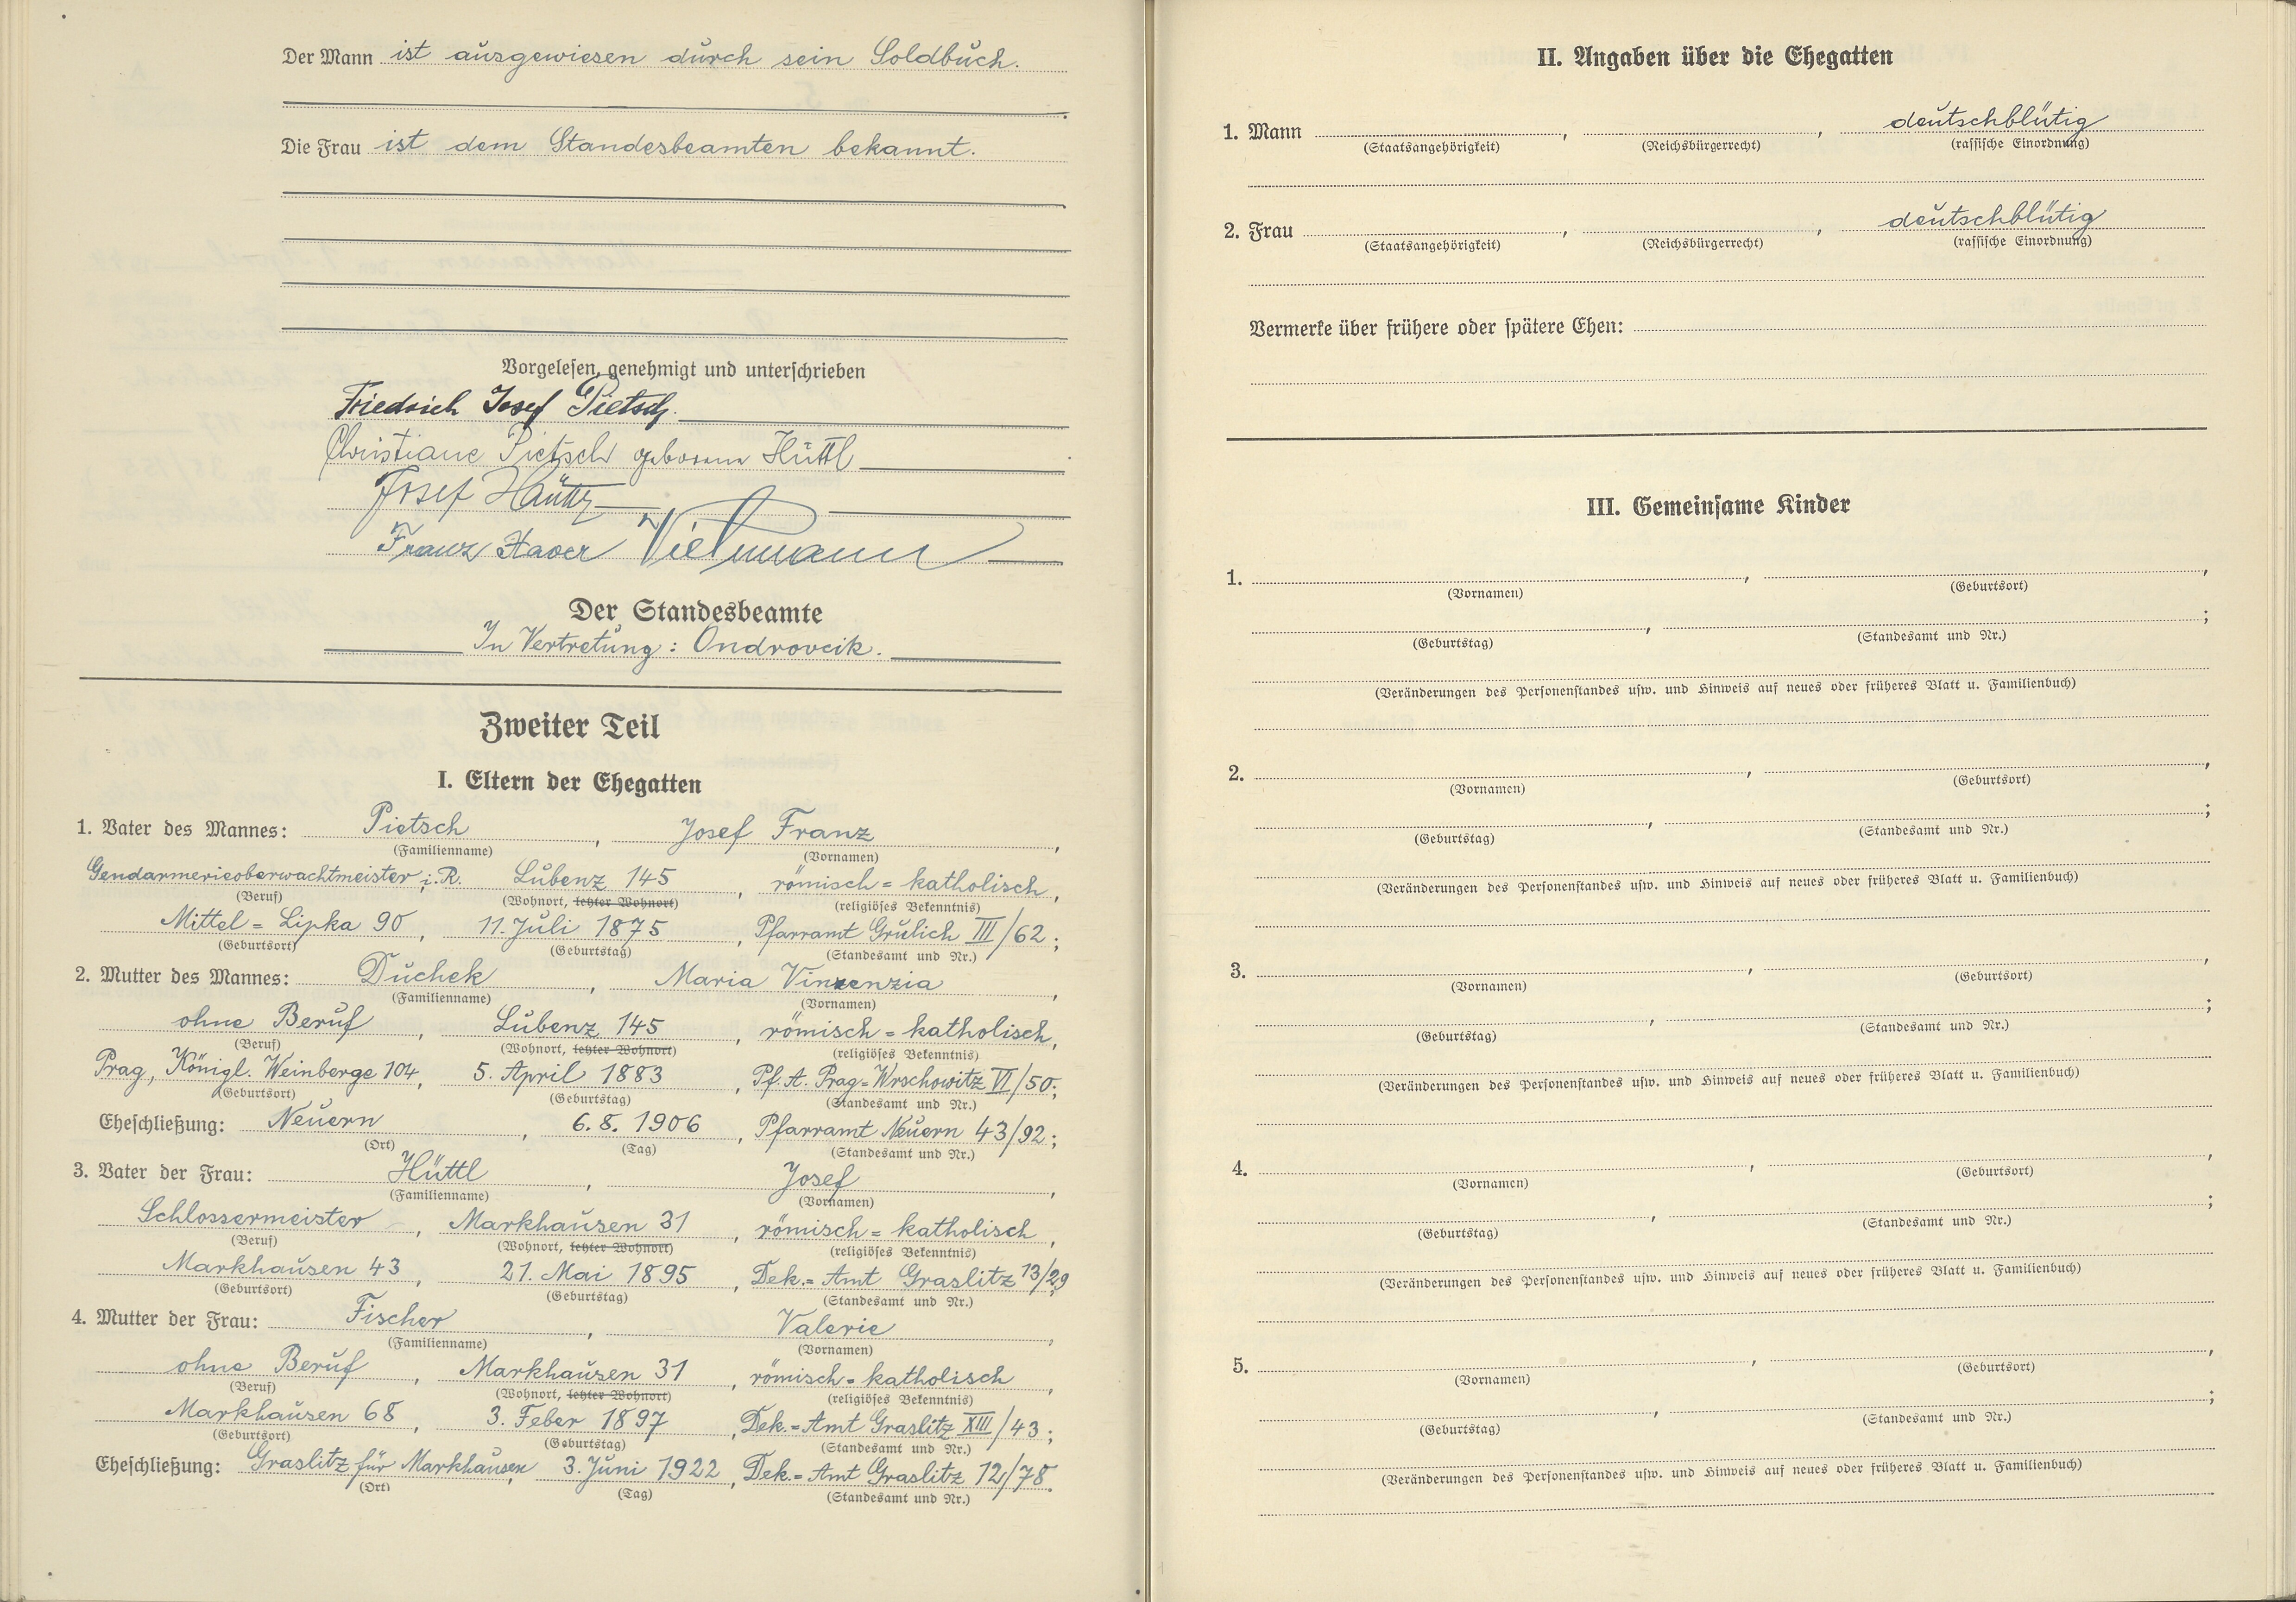 Der Mann ist ausgewiesen durch sein Soldbuch.
Die Frau ist dem Standesbeamten bekannt.
Vorgelesen, genehmigt und unterschrieben
Friedrich Josef Pietsch.
Christiane Pietsch geborene Hüttl
Josef
Franz Xaver
Der Standesbeamte
In Vertretung: Ondrovcik.
Zweiter Teil
I. Eltern der Ehegatten
1. Vater des Mannes: Pietsch, Josef Franz,
(Familienname) (Vornamen)
Gendarmerieoberwachtmeister i. R. Lubenz 145, römisch=katholisch,
(Beruf) (Wohnort, letzter Wohnort) (religiöses Bekenntnis)
Mittel=Lipka 90, 11. Juli 1875, Pfarramt Grulich III/62;
(Geburtsort) (Geburtstag) (Standesamt und Nr.)
2. Mutter des Mannes: Duchek, Maria Vinzenzia,
(Familienname) (Vornamen)
ohne Beruf, Lubenz 145, römisch=katholisch,
(Beruf) (Wohnort, letzter Wohnort) (religiöses Bekenntnis)
Prag, Königl. Weinberge 104, 5. April 1883, Pf. A. Prag=Wrschowitz VI/50;
(Geburtsort) (Geburtstag) (Standesamt und Nr.)
Eheschließung: Neuern, 6. 8. 1906, Pfarramt Neuern 43/92;
(Ort) (Tag) (Standesamt und Nr.)
3. Vater der Frau: Hüttl, Josef,
(Familienname) (Vornamen)
Schlossermeister, Markhausen 31, römisch=katholisch,
(Beruf) (Wohnort, letzter Wohnort) (religiöses Bekenntnis)
Markhausen 43, 21. Mai 1895, Dek.=Amt Graslitz 13/29;
(Geburtsort) (Geburtstag) (Standesamt und Nr.)
4. Mutter der Frau: Fischer, Valerie,
(Familienname) (Vornamen)
ohne Beruf, Markhausen 31, römisch=katholisch,
(Beruf) (Wohnort, letzter Wohnort) (religiöses Bekenntnis)
Markhausen 68, 3. Feber 1897, Dek.=Amt Graslitz XIII/43;
(Geburtsort) (Geburtstag) (Standesamt und Nr.)
Eheschließung: Graslitz für Markhausen, 3. Juni 1922, Dek.=Amt Graslitz 12/78.
(Ort) (Tag) (Standesamt und Nr.)
II. Angaben über die Ehegatten
1. Mann , , deutschblütig
(Staatsangehörigkeit) (Reichsbürgerrecht) (rassische Einordnung)
2. Frau , , deutschblütig
(Staatsangehörigkeit) (Reichsbürgerrecht) (rassische Einordnung)
Vermerke über frühere oder spätere Ehen:
III. Gemeinsame Kinder
1. , ,
(Vornamen) (Geburtsort)
, ;
(Geburtstag) (Standesamt und Nr.)
(Veränderungen des Personenstandes usw. und Hinweis auf neues oder früheres Blatt u. Familienbuch)
2. , ,
(Vornamen) (Geburtsort)
, ;
(Geburtstag) (Standesamt und Nr.)
(Veränderungen des Personenstandes usw. und Hinweis auf neues oder früheres Blatt u. Familienbuch)
3. , ,
(Vornamen) (Geburtsort)
, ;
(Geburtstag) (Standesamt und Nr.)
(Veränderungen des Personenstandes usw. und Hinweis auf neues oder früheres Blatt u. Familienbuch)
4. , ,
(Vornamen) (Geburtsort)
, ;
(Geburtstag) (Standesamt und Nr.)
(Veränderungen des Personenstandes usw. und Hinweis auf neues oder früheres Blatt u. Familienbuch)
5. , ,
(Vornamen) (Geburtsort)
, ;
(Geburtstag) (Standesamt und Nr.)
(Veränderungen des Personenstandes usw. und Hinweis auf neues oder früheres Blatt u. Familienbuch)